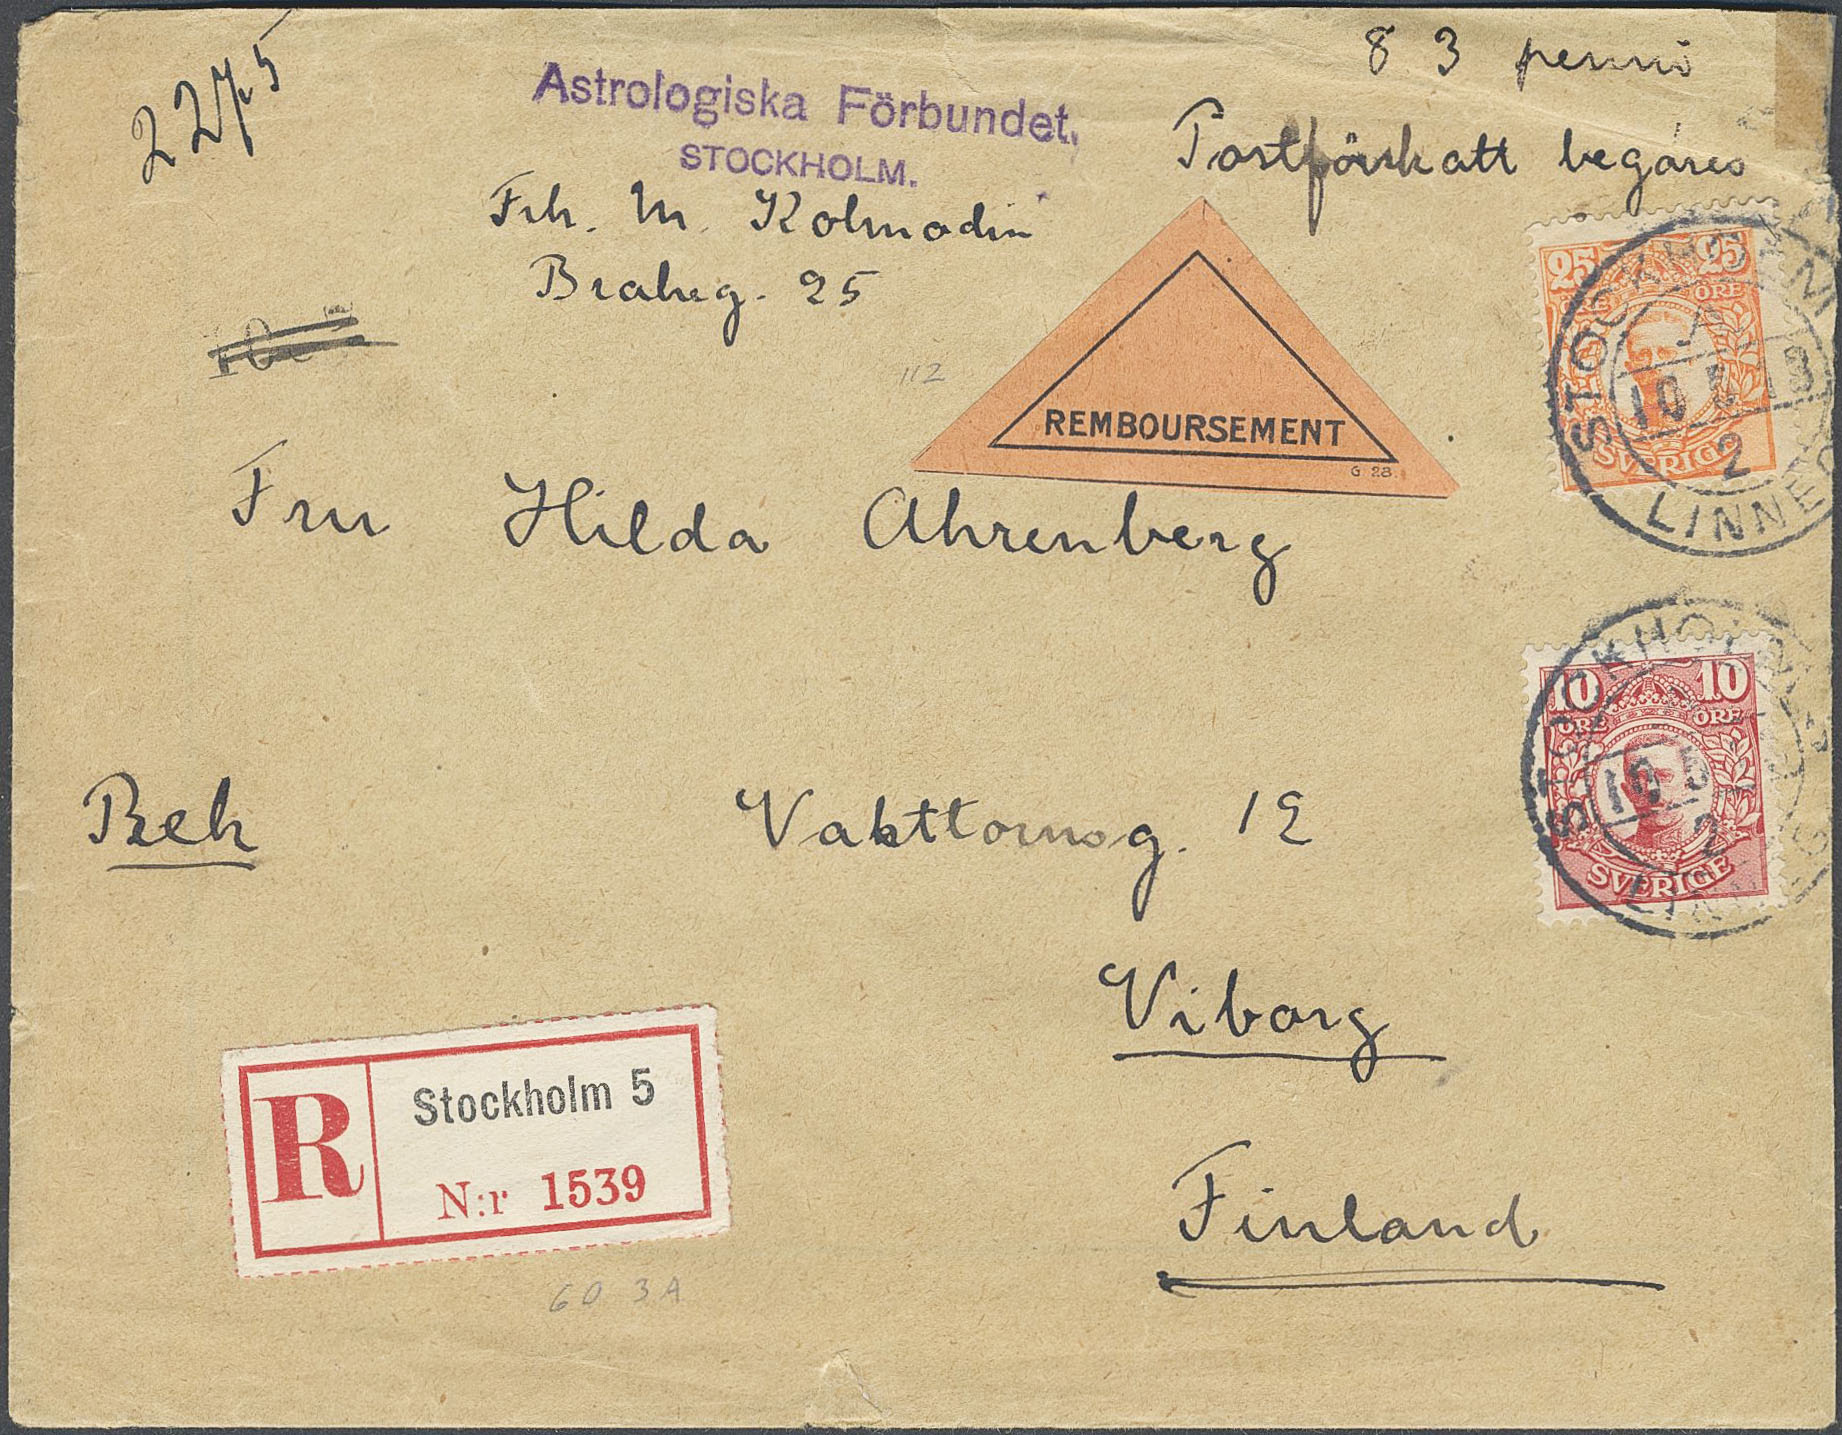 2275
83 penni
Astrologiska Förbundet.
STOCKHOLM.
Postförskatt begäres
Frh. M. Kolmodin
Braheg. 25
112
REMBOURSEMENT
G 28.
25 25
ÖRE ÖRE
SVERIGE
STOCKHOLM
10 5 18
2
LINNEG
Fru Hilda Ahrenberg
10 10
ÖRE ÖRE
SVERIGE
STOCKHOLM
10 5
2
Rek
Vakttornsg. 12
Viborg
R
Stockholm 5
N:r 1539
Finland
60 3A